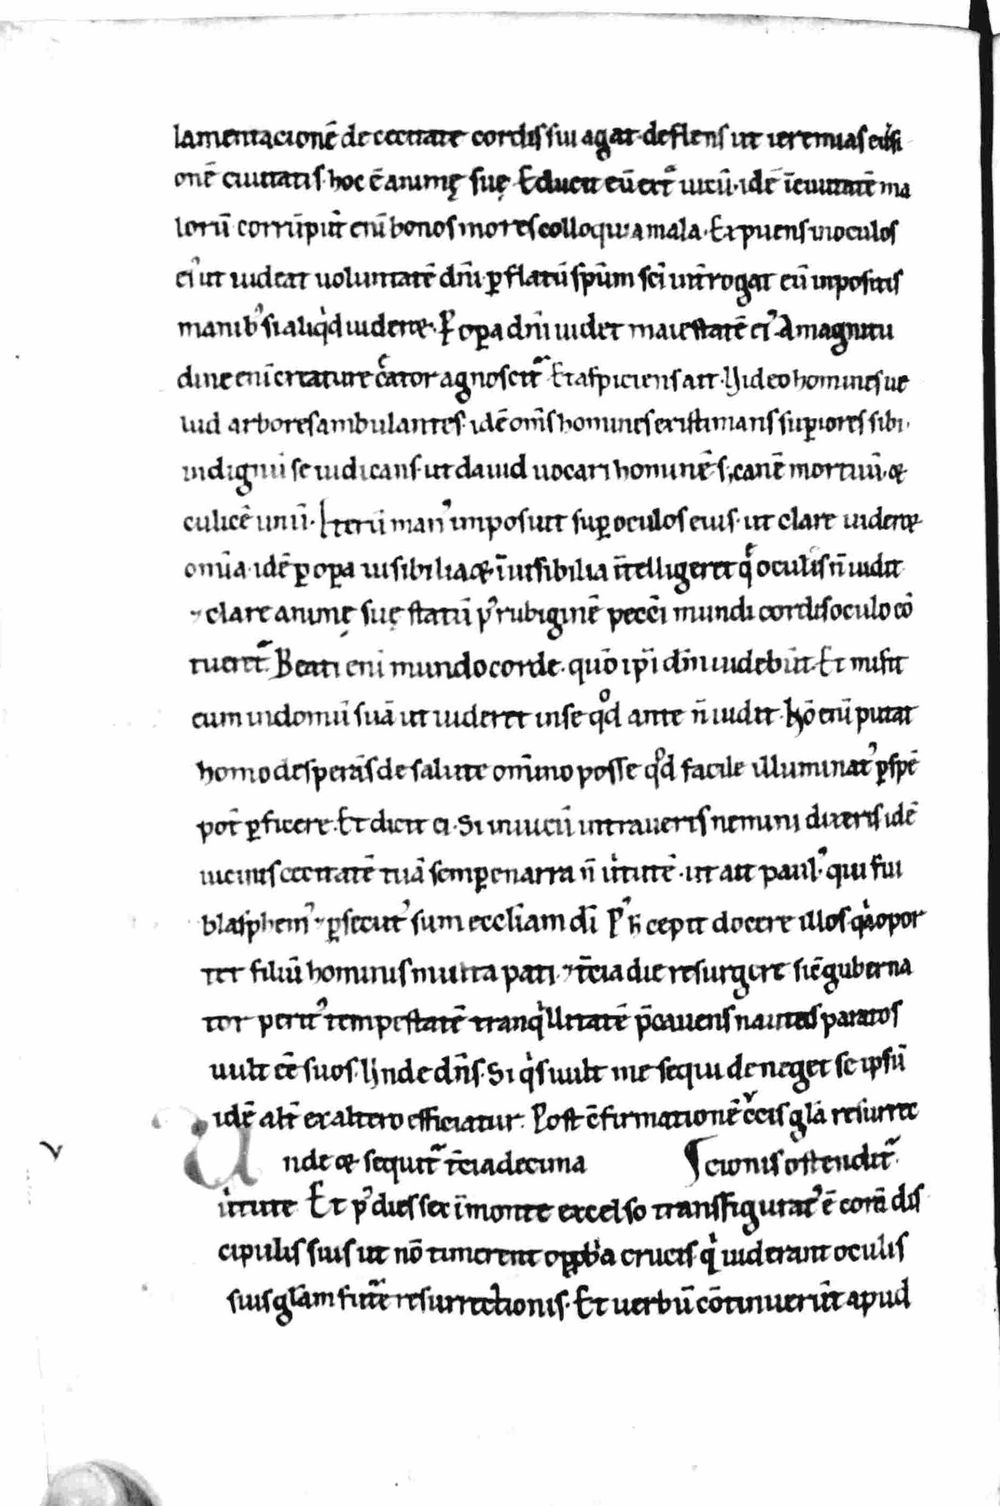 lamentacionē de cecitate cordis sui agat· deflens ut ieremias euersi
onē ciuitatis· hoc ē animę suę· Educit eū extra uicū· idē ī ciuitatē ma
lorū corrūpūt enī bonos mores colloquia mala· Expuens in oculos
ei' ut uideat uoluntatē dn̄i· ꝑ flatū sp̄um sc̄i int̄rogat eū inpositis
manib' si aliqͥd uideret· P oꝑa dn̄i uidet maiestatē ei'· A magnitu
dine enī creature creator agnoscit᷑· Et aspiciens ait· Video homines ue
lud arbores ambulantes· idē om̄s homines existimans suꝑiores sibi·
indignū se iudicans ut dauid uocari hominē· s; canē mortuū· &
culicē unū· Iterū man' imposuit suꝑ oculos eius· ut clare uideret
om̄ia· idē ꝑ oꝑa uisibilia & īuisibilia īntelligeret q̄ oculis n̄ uidit
⁊ clare animę suę statū p' rubiginē pecc̄i mundi cordis oculo cō
tueret᷑· Beati enī mundo corde· quō ip̄i dm̄ uidebūt· Et misit
eum in domū suā ut uideret in se qͦd ante n̄ uidit· Hō enī putat
homo desperās de salute om̄ino posse qͦd facile illuminat' ꝑ spē
pot̄ ꝑficere· Et dicit ei· Si in uicū intraueris nemini dixeris idē
uicinis cecitatē tuā semꝑ enarra n̄ uͥtutē· ut ait paul' qui fui
blasphem' ⁊ ꝑsecut' sum eccl̄iam dī P' h̄ cepit docere illos qͥa opor
tet filiū hominis multa pati· ⁊ t̄cia die resurgere sic̄ guberna
tor perit' tempestatē tranqͥllitatē p̄cauens nautas paratos
uult eē suos· Unde dn̄s· Si qͥs uult me sequi deneget se ipsū
idē alt̄ ex altero efficiatur· Post cōfirmationē crucis gl̄a resurrec
Unde & sequit᷑ t̄cia decuna cionis ostendit᷑·
uͥtute Et p' dies sex ī monte excelso transfigurat' ē corā dis
cipulis suis ut nō timerent opꝓbͥa crucis qͥ uiderant oculis
suis gl̄am future resurrectionis· Et uerbū cōtinuerūt apud